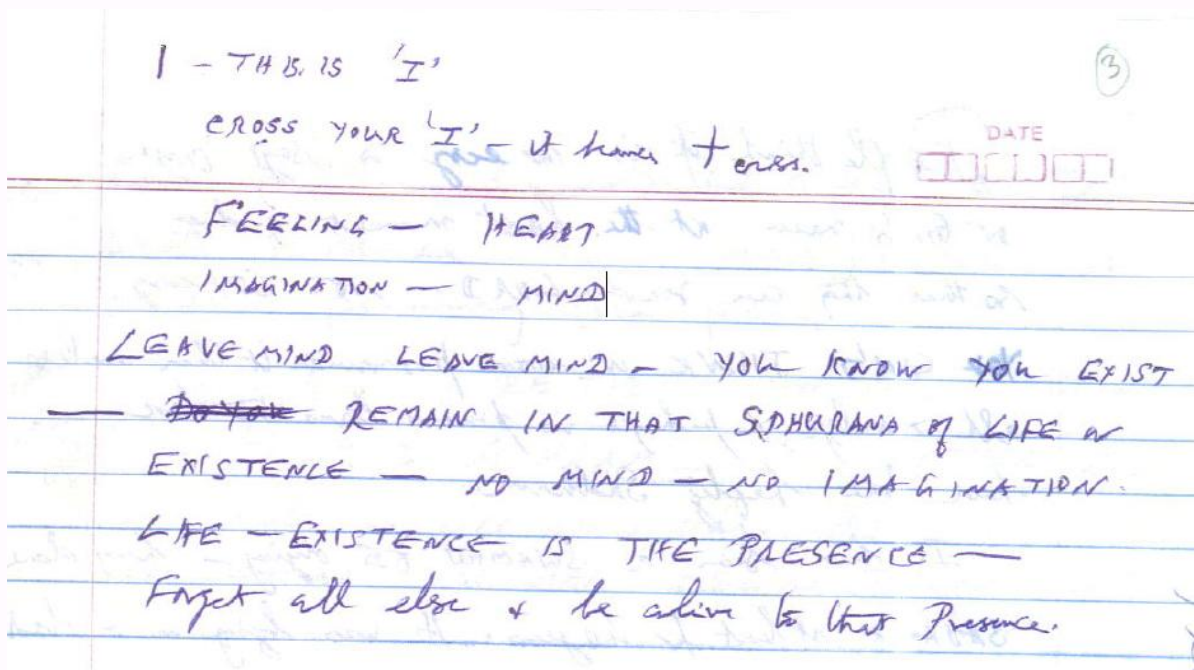 1 - THIS IS 'I'
③
CROSS YOUR 'I' - it becomes † cross.
DATE
FEELING — HEART
IMAGINATION — MIND
LEAVE MIND LEAVE MIND - YOU KNOW YOU EXIST
— REMAIN IN THAT SPHURANA of LIFE or
EXISTENCE — NO MIND — NO IMAGINATION.
LIFE — EXISTENCE IS THE PRESENCE —
Forget all else & be alive to that Presence.